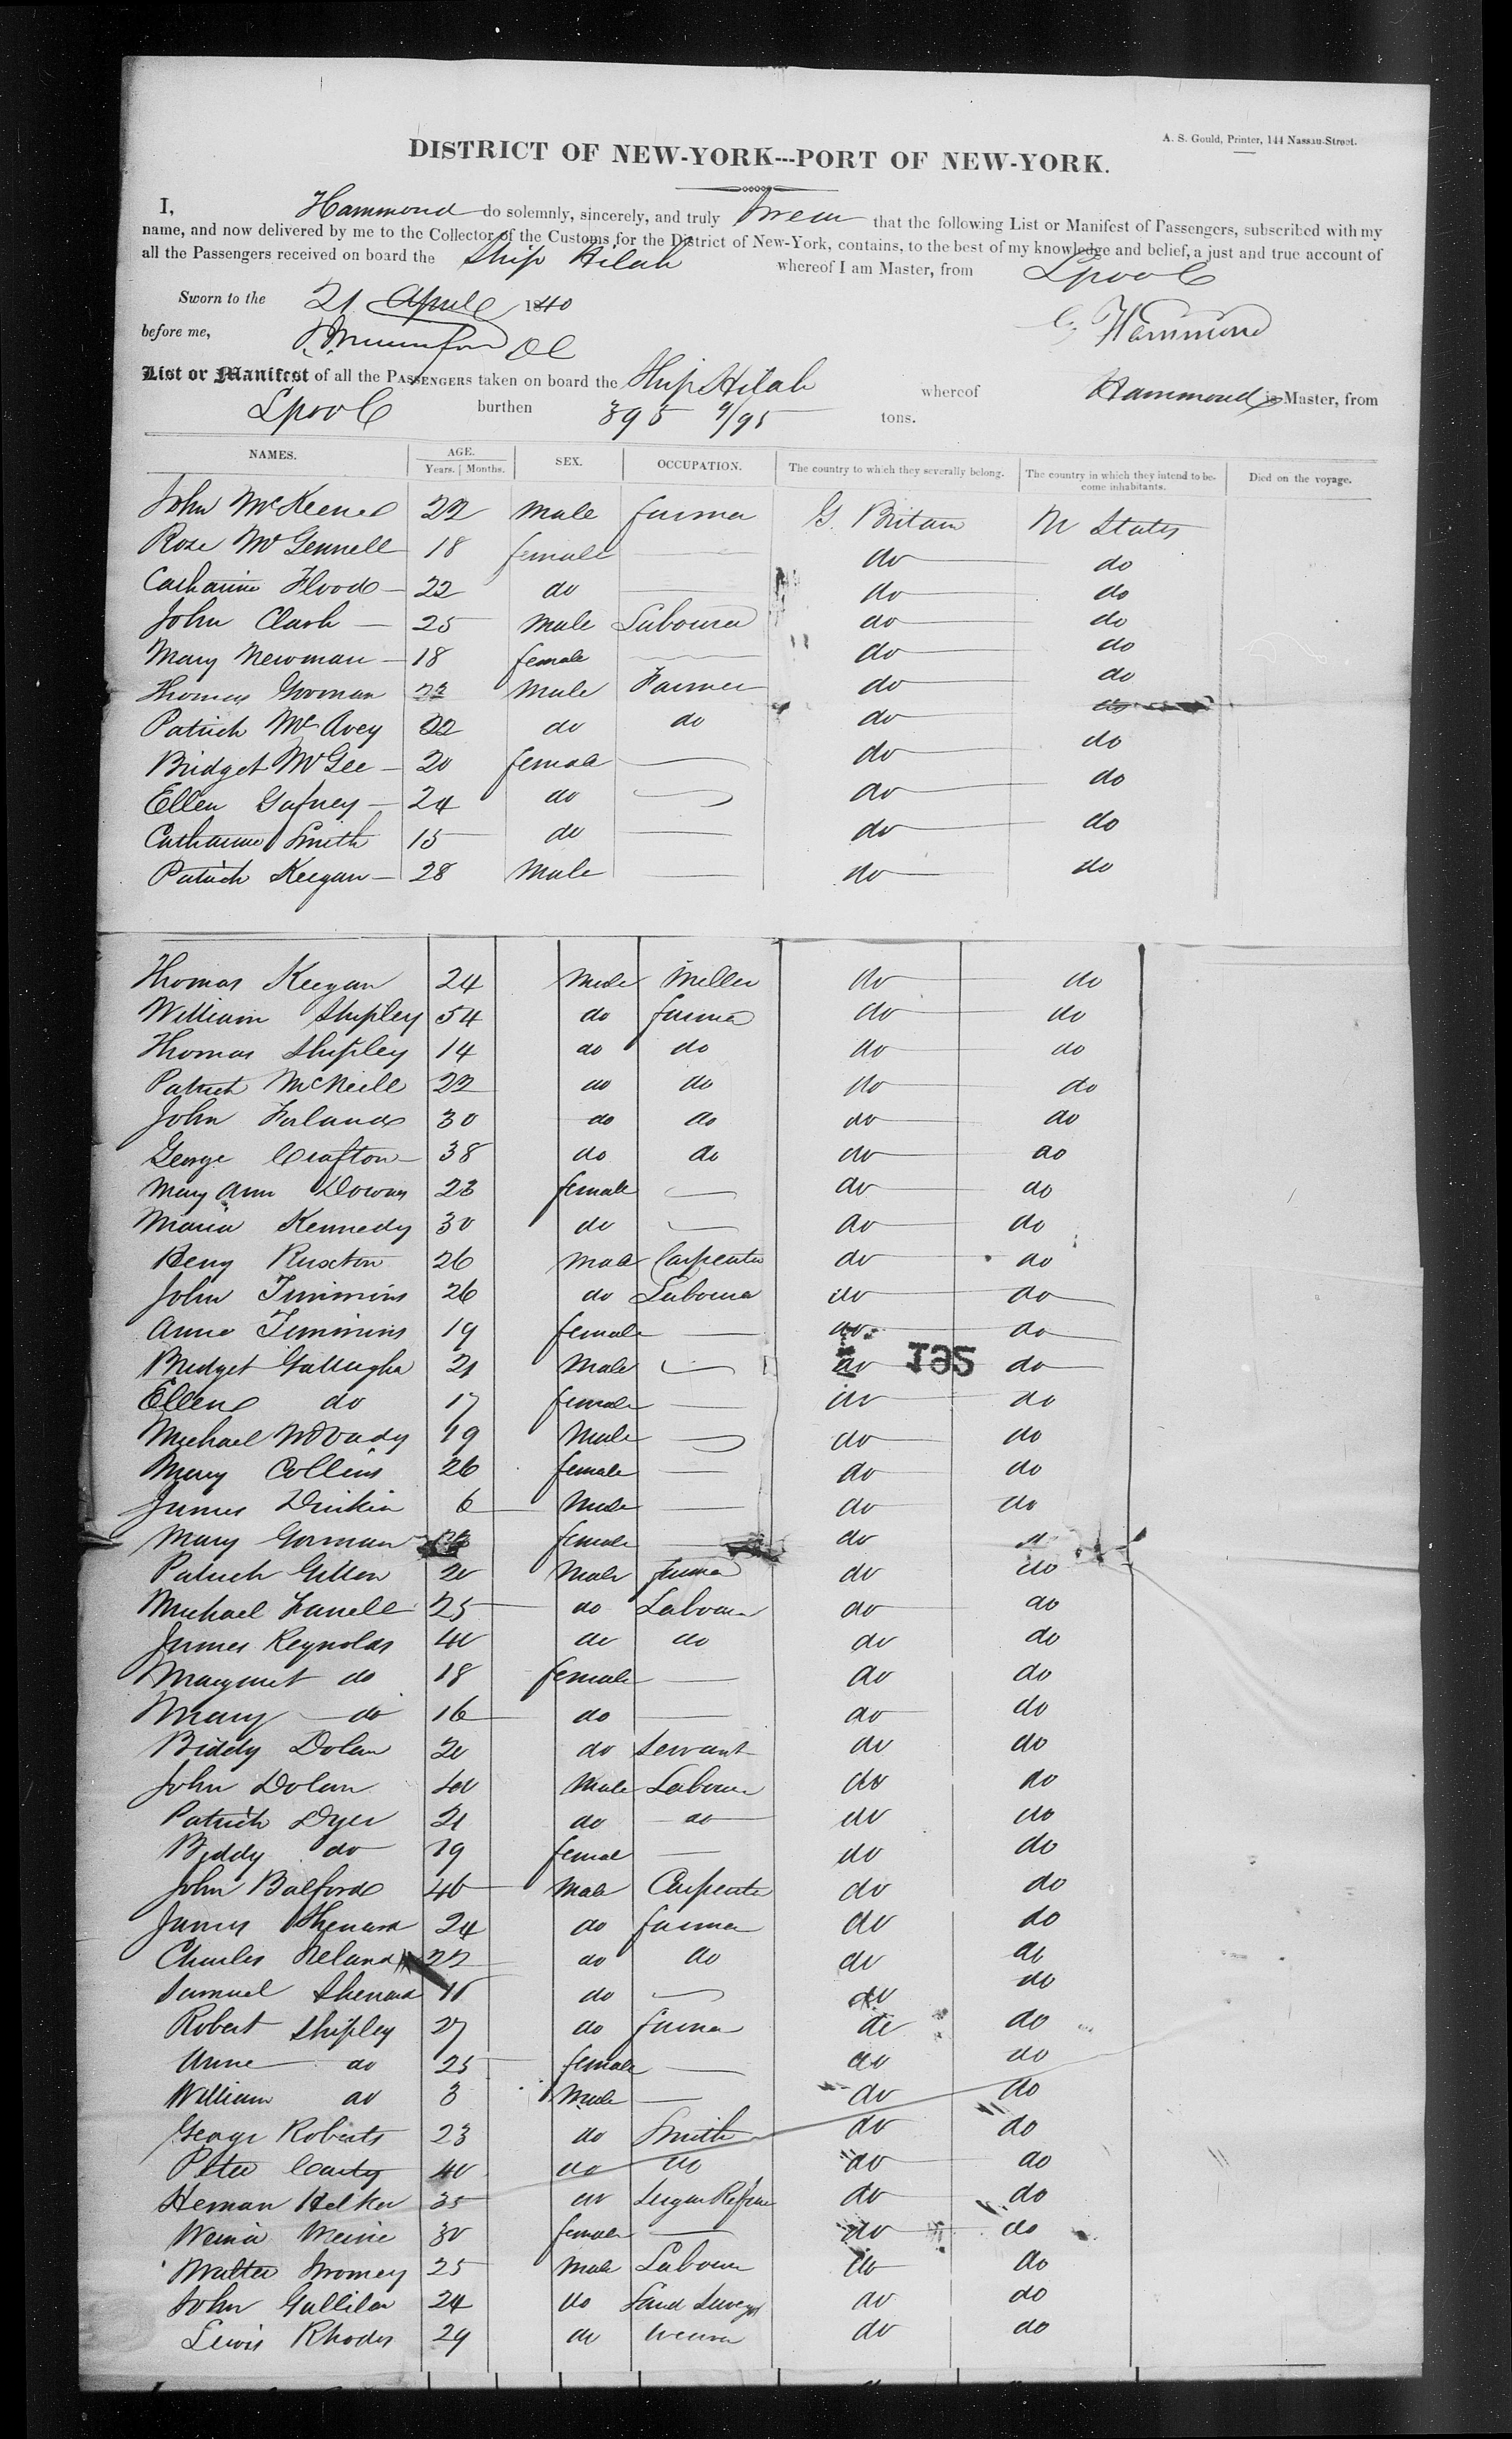 A. S. Gould, Printer, 144 Nassau-Street.
DISTRICT OF NEW-YORK---PORT OF NEW-YORK.
I, Hammond do solemnly, sincerely, and truly swear that the following List or Manifest of Passengers, subscribed with my
name, and now delivered by me to the Collector of the Customs for the District of New-York, contains, to the best of my knowledge and belief, a just and true account of
all the Passengers received on board the Ship Hilah whereof I am Master, from Lpool
Sworn to the 21 April 1840
before me, DC
C. Hammond
List or Manifest of all the PASSENGERS taken on board the Ship Hilah whereof Hammond is Master, from
Lpool burthen 395 9/95 tons.
NAMES. AGE. Years. Months. SEX. OCCUPATION. The country to which they severally belong. The country in which they intend to become inhabitants. Died on the voyage.
John McKeene 22 Male farmer G. Britain U States
Rose McGennell 18 female do do
Catharine Flood 22 do do do
John Clark 25 Male Labourer do do
Mary Newman 18 female do do
Thomas Gorman 23 Male Farmer do do
Patrick McAvey 22 do do do do
Bridget McGee 20 female do do
Ellen Gafney 24 do do do
Catharine Smith 15 do do do
Patrick Keegan 28 Male do do
Thomas Keegan 24 Male Miller do do
William Shipley 54 do farmer do do
Thomas Shipley 14 do do do do
Patrick McNeill 22 do do do do
John Furland 30 do do do do
George Crafton 38 do do do do
Mary Ann Downy 23 female do do
Maria Kennedy 30 do do do
Heny Ruxton 26 Male Carpenter do do
John Timmins 26 do Labourer do do
Anne Timmins 19 female do do
Bridget Gallagher 21 Male do do
195
Ellen do 17 female do do
Michael 19 Male do do
Mary Collins 26 female do do
James Dinkin 6 Male do do
Mary Gorman female do do
Patrick Gillon 20 Male farmer do do
Michael Farrell 25 do Labourer do do
James Reynolds 40 do do do do
Margaret do 18 female do do
Mary do 16 do do do
Biddy Dolan 20 do Servant do do
John Dolan 40 Male Labourer do do
Patrick Dyer 21 do do do do
Biddy do 19 female do do
John Balford 40 Male Carpenter do do
James Sherard 24 do farmer do do
Charles Ireland 22 do do do do
Samuel Sherard do do do
Robert Shipley 27 do farmer do do
Anne do 25 female do do
William do 3 Male do do
George Roberts 23 do Smith do do
Peter Carty 40 do do do do
Heman Helker 35 do Sugar Refiner do do
30 female do do
Walter Twomey 25 Male Labourer do do
John Gallilar 24 do Land Surveyor do do
Lewis Rhodes 29 do weaver do do